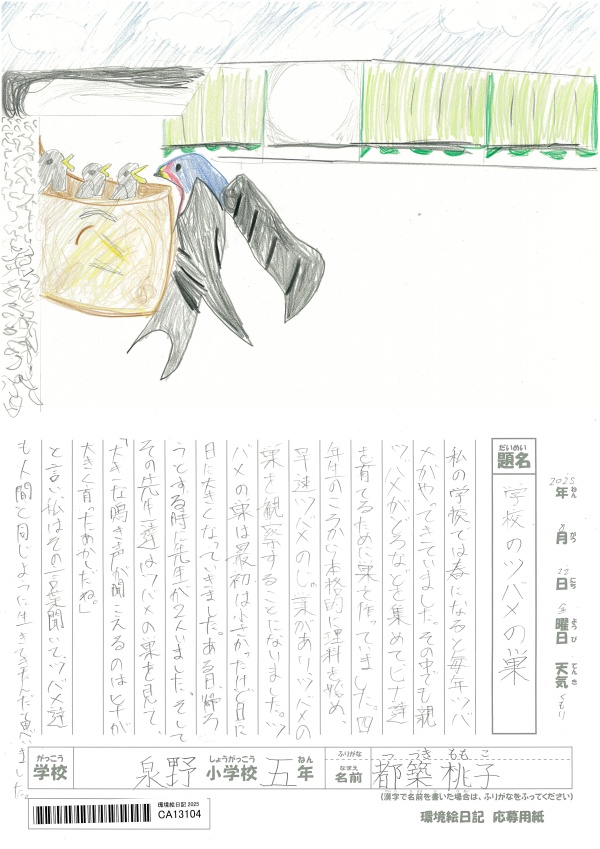 だいめい
題名
学校のツバメの巣
2025年 ねん
月 がつ
22日 にち
金曜日 ようび
天気 てんき くもり
私の学校では春になると毎年ツバ
メがやってきていました。その中でも親
ツバメがどろなどを集めてヒナ達
を育てるために巣を作っていました。四
年生のころから本格的に理科を始め、
早速ツバメの
巣を観察することになりました。ツ
バメの巣は最初は小さかったけど日に
日に大きくなっていきました。ある日帰ろ
うとする時に先生が2人いました。そして
その先生達はツバメの巣を見て、
「大きな鳴き声が聞こえるのはヒナが
大きく育ったあかしだね。」
と言い私はその言葉聞いて、ツバメ達
も人間と同じように生きてきたんだ思いました。
がっこう
学校
泉野小学校 しょうがっこう 五年 ねん
ふりがな つ づき もも こ
なまえ
名前 都築 桃子
(漢字で名前を書いた場合は、ふりがなをふってください)
環境絵日記 2025
CA13104
環境絵日記 応募用紙